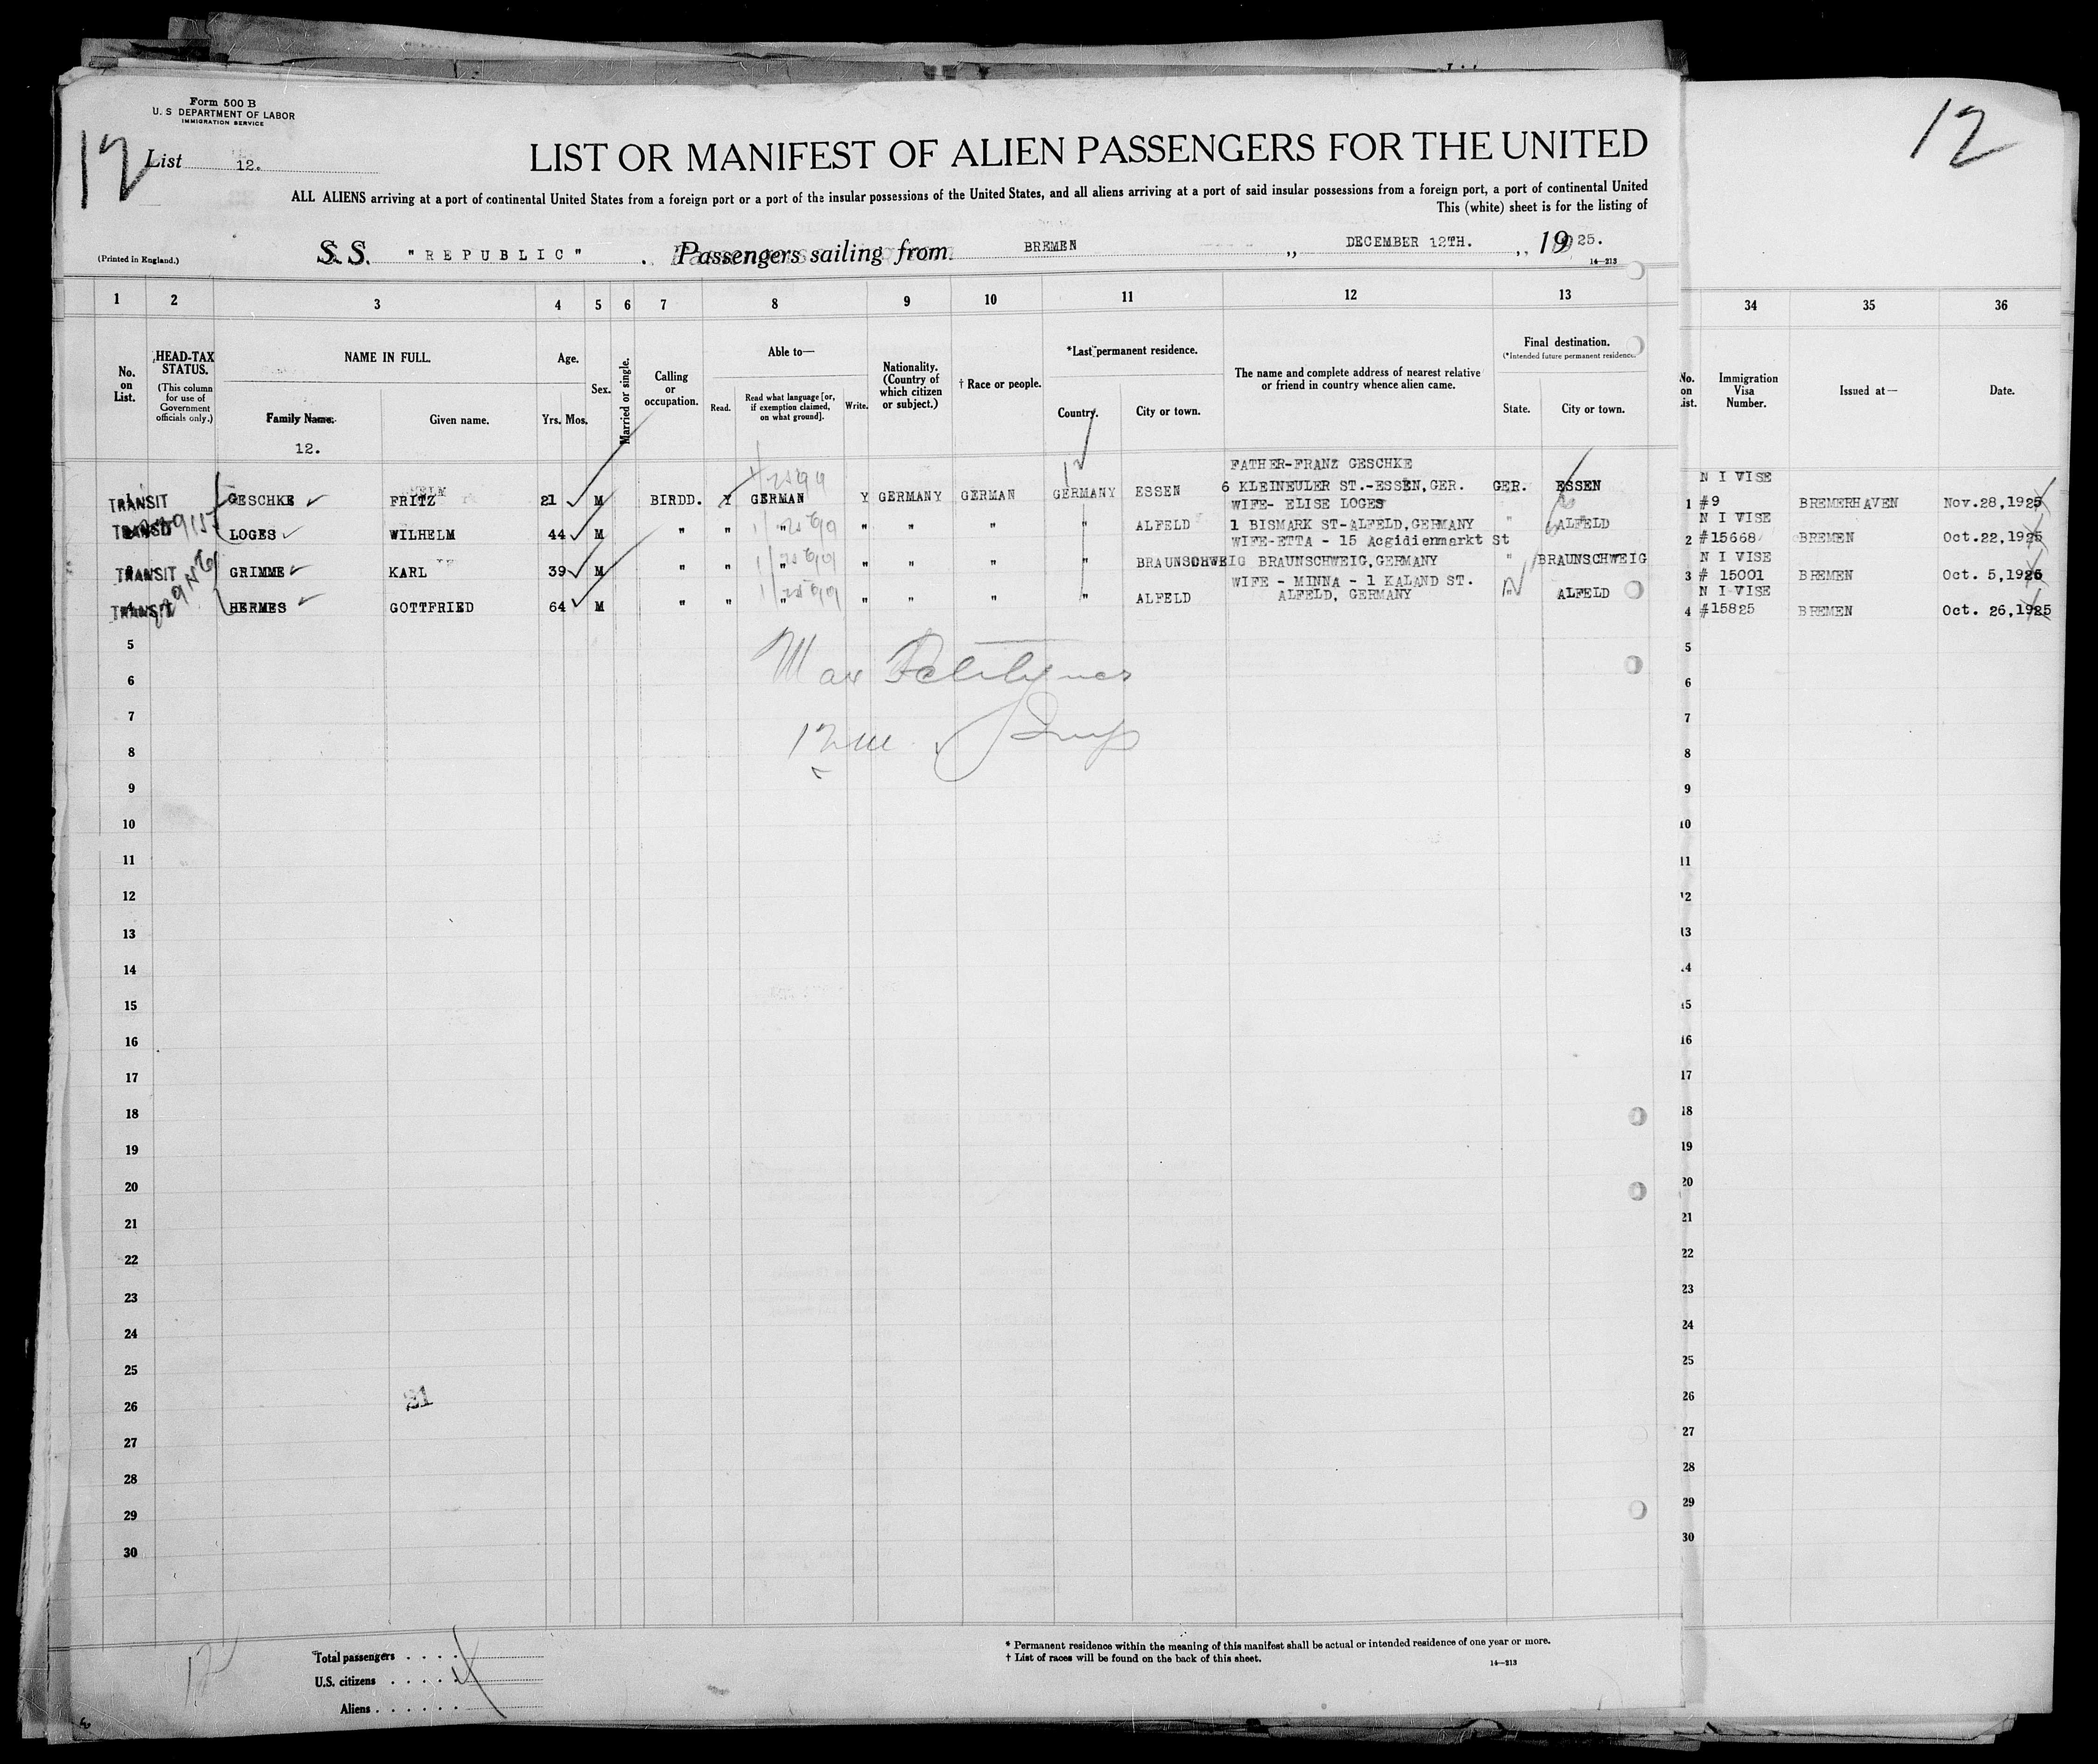 Form 500 B
U. S DEPARTMENT OF LABOR
IMMIGRATION SERVICE
12
12
List 12.
LIST OR MANIFEST OF ALIEN PASSENGERS FOR THE UNITED
ALL ALIENS arriving at a port of continental United States from a foreign port or a port of the insular possessions of the United States, and all aliens arriving at a port of said insular possessions from a foreign port, a port of continental United
This (white) sheet is for the listing of
(Printed in England.) S. S. "REPUBLIC" . Passengers sailing from BREMEN ,, DECEMBER 12TH. ., 19 25.
14—213
1 2 3 4 5 6 7 8 9 10 11 12 13 34 35 36
No. on List.
HEAD-TAX STATUS.
(This column for use of Government officials only.)
NAME IN FULL.
Family Name.
12.
Given name.
Age.
Yrs. Mos.
Sex.
Married or single.
Calling or occupation.
Able to—
Read.
Read what language [or, if exemption claimed, on what ground].
Write.
Nationality. (Country of which citizen or subject.)
† Race or people.
*Last permanent residence.
Country.
City or town.
The name and complete address of nearest relative or friend in country whence alien came.
Final destination.
(*Intended future permanent residence.
State.
City or town.
No. on ist.
Immigration Visa Number.
Issued at—
Date.
FATHER-FRANZ GESCHKE
TRANSIT GESCHKE FRITZ 21 M BIRDD. Y GERMAN Y GERMANY GERMAN GERMANY ESSEN 6 KLEINEULER ST.-ESSEN,GER. GER. ESSEN
N I VISE
1 #9 BREMERHAVEN Nov.28,1925
WIFE- ELISE LOGES
TRANSIT LOGES WILHELM 44 M " " " " " " " ALFELD 1 BISMARK ST-ALFELD,GERMANY " ALFELD
N I VISE
2 #15668 BREMEN Oct.22,1925
WIFE-ETTA - 15 Aegidienmarkt St
TRANSIT GRIMME KARL 39 M " " " " " " " BRAUNSCHWEIG BRAUNSCHWEIG,GERMANY " BRAUNSCHWEIG
N I VISE
3 # 15001 BREMEN Oct. 5,1925
WIFE - MINNA - 1 KALAND ST.
TRANSIT HERMES GOTTFRIED 64 M " " " " " " " ALFELD ALFELD, GERMANY " ALFELD
N I VISE
4 #15825 BREMEN Oct. 26,1925
5 5
6 6
7 7
8 8
9 9
10 10
11 11
12 12
13 13
14 14
15 15
16 16
17 17
18 18
19 19
20 20
21 21
22 22
23 23
24 24
25 25
26 26
27 27
28 28
29 29
30 30
21
Total passengers . . . .
U.S. citizens . . . . .
Aliens . . . . . .
* Permanent residence within the meaning of this manifest shall be actual or intended residence of one year or more.
† List of races will be found on the back of this sheet.
14—213